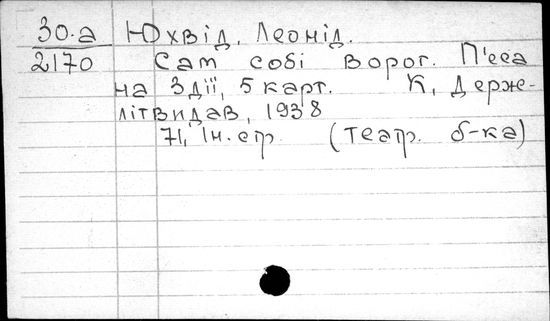 30.а Юхвід, Леонід.
2170 Сам собі ворог. П'єса
на 3 дії, 5 карт. К, Держ-
літвидав, 1938
71, 1н. стр. (театр. б-ка)